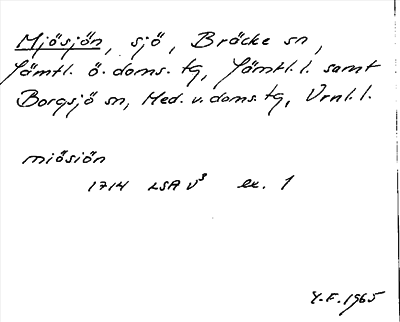 Mjösjön, sjö, Bräcke sn,
Jämtl. ö. doms. tg, Jämtl. l. samt
Borgsjö sn, Med. v. doms. tg, Vrnl. l.
miösiön
1714 LSA V³ ex. 1
Y.F. 1965